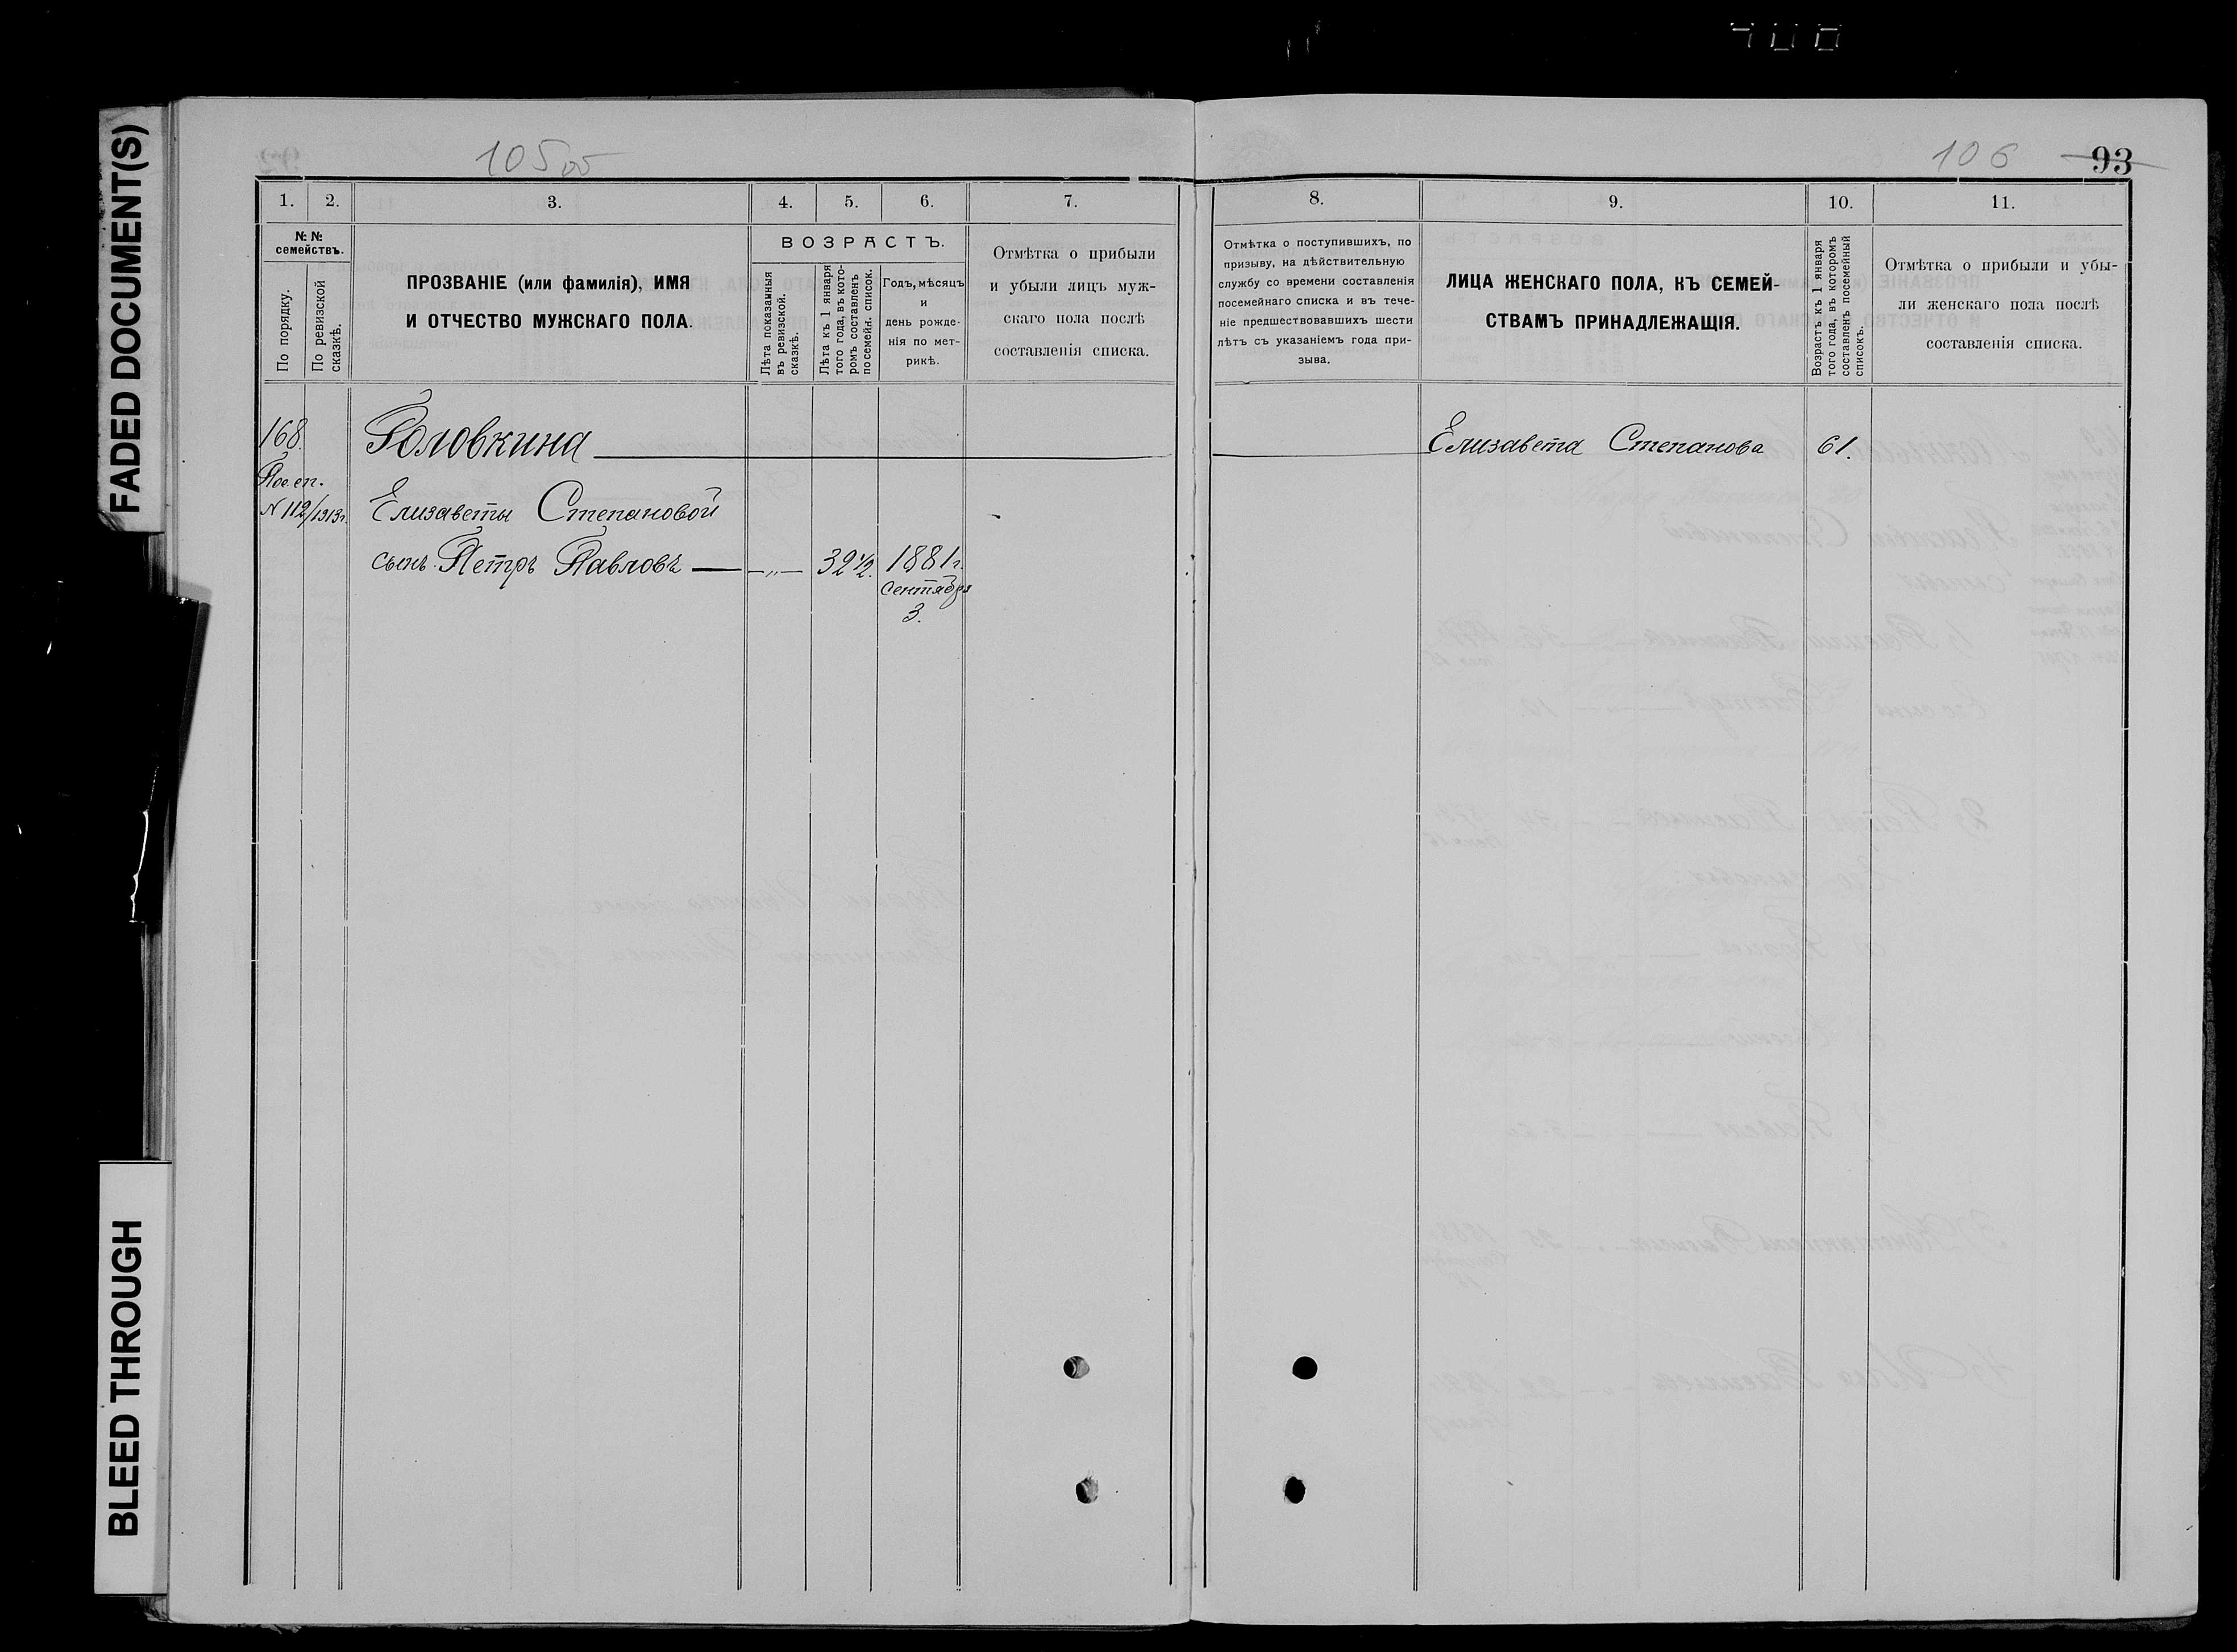 FADED DOCUMENT(S)
BLEED THROUGH
105 об
1. 2. 3. 4. 5. 6. 7.
№ №
семействъ.
По порядку.
По ревизской
сказкѣ.
ПРОЗВАНІЕ (или фамилія), ИМЯ
И ОТЧЕСТВО МУЖСКАГО ПОЛА.
ВОЗРАСТЪ.
Лѣта показанныя
въ ревизской.
сказкѣ.
Лѣта къ 1 января
того года, въ кото-
ромъ составленъ
посемейн. список.
Годъ, мѣсяцъ
и
день рожде-
нія по мет-
рикѣ.
Отмѣтка о прибыли
и убыли лицъ муж-
скаго пола послѣ
составленія списка.
168.
Пос. сп.
N 112/1913г.
Головкина
Елизаветы Степановой
сынъ Петръ Павловъ — „ — 32 1/2. 1881г.
сентября
3.
106 93
8. 9. 10. 11.
Отмѣтка о поступившихъ, по
призыву, на дѣйствительную
службу со времени составленія
посемейнаго списка и въ тече-
ніе предшествовавшихъ шести
лѣтъ съ указаніемъ года при-
зыва.
ЛИЦА ЖЕНСКАГО ПОЛА, КЪ СЕМЕЙ-
СТВАМЪ ПРИНАДЛЕЖАЩІЯ.
Возрастъ къ 1 января
того года, въ которомъ
составленъ посемейный
списокъ.
Отмѣтка о прибыли и убы-
ли женскаго пола послѣ
составленія списка.
Елизавета Степанова 61.